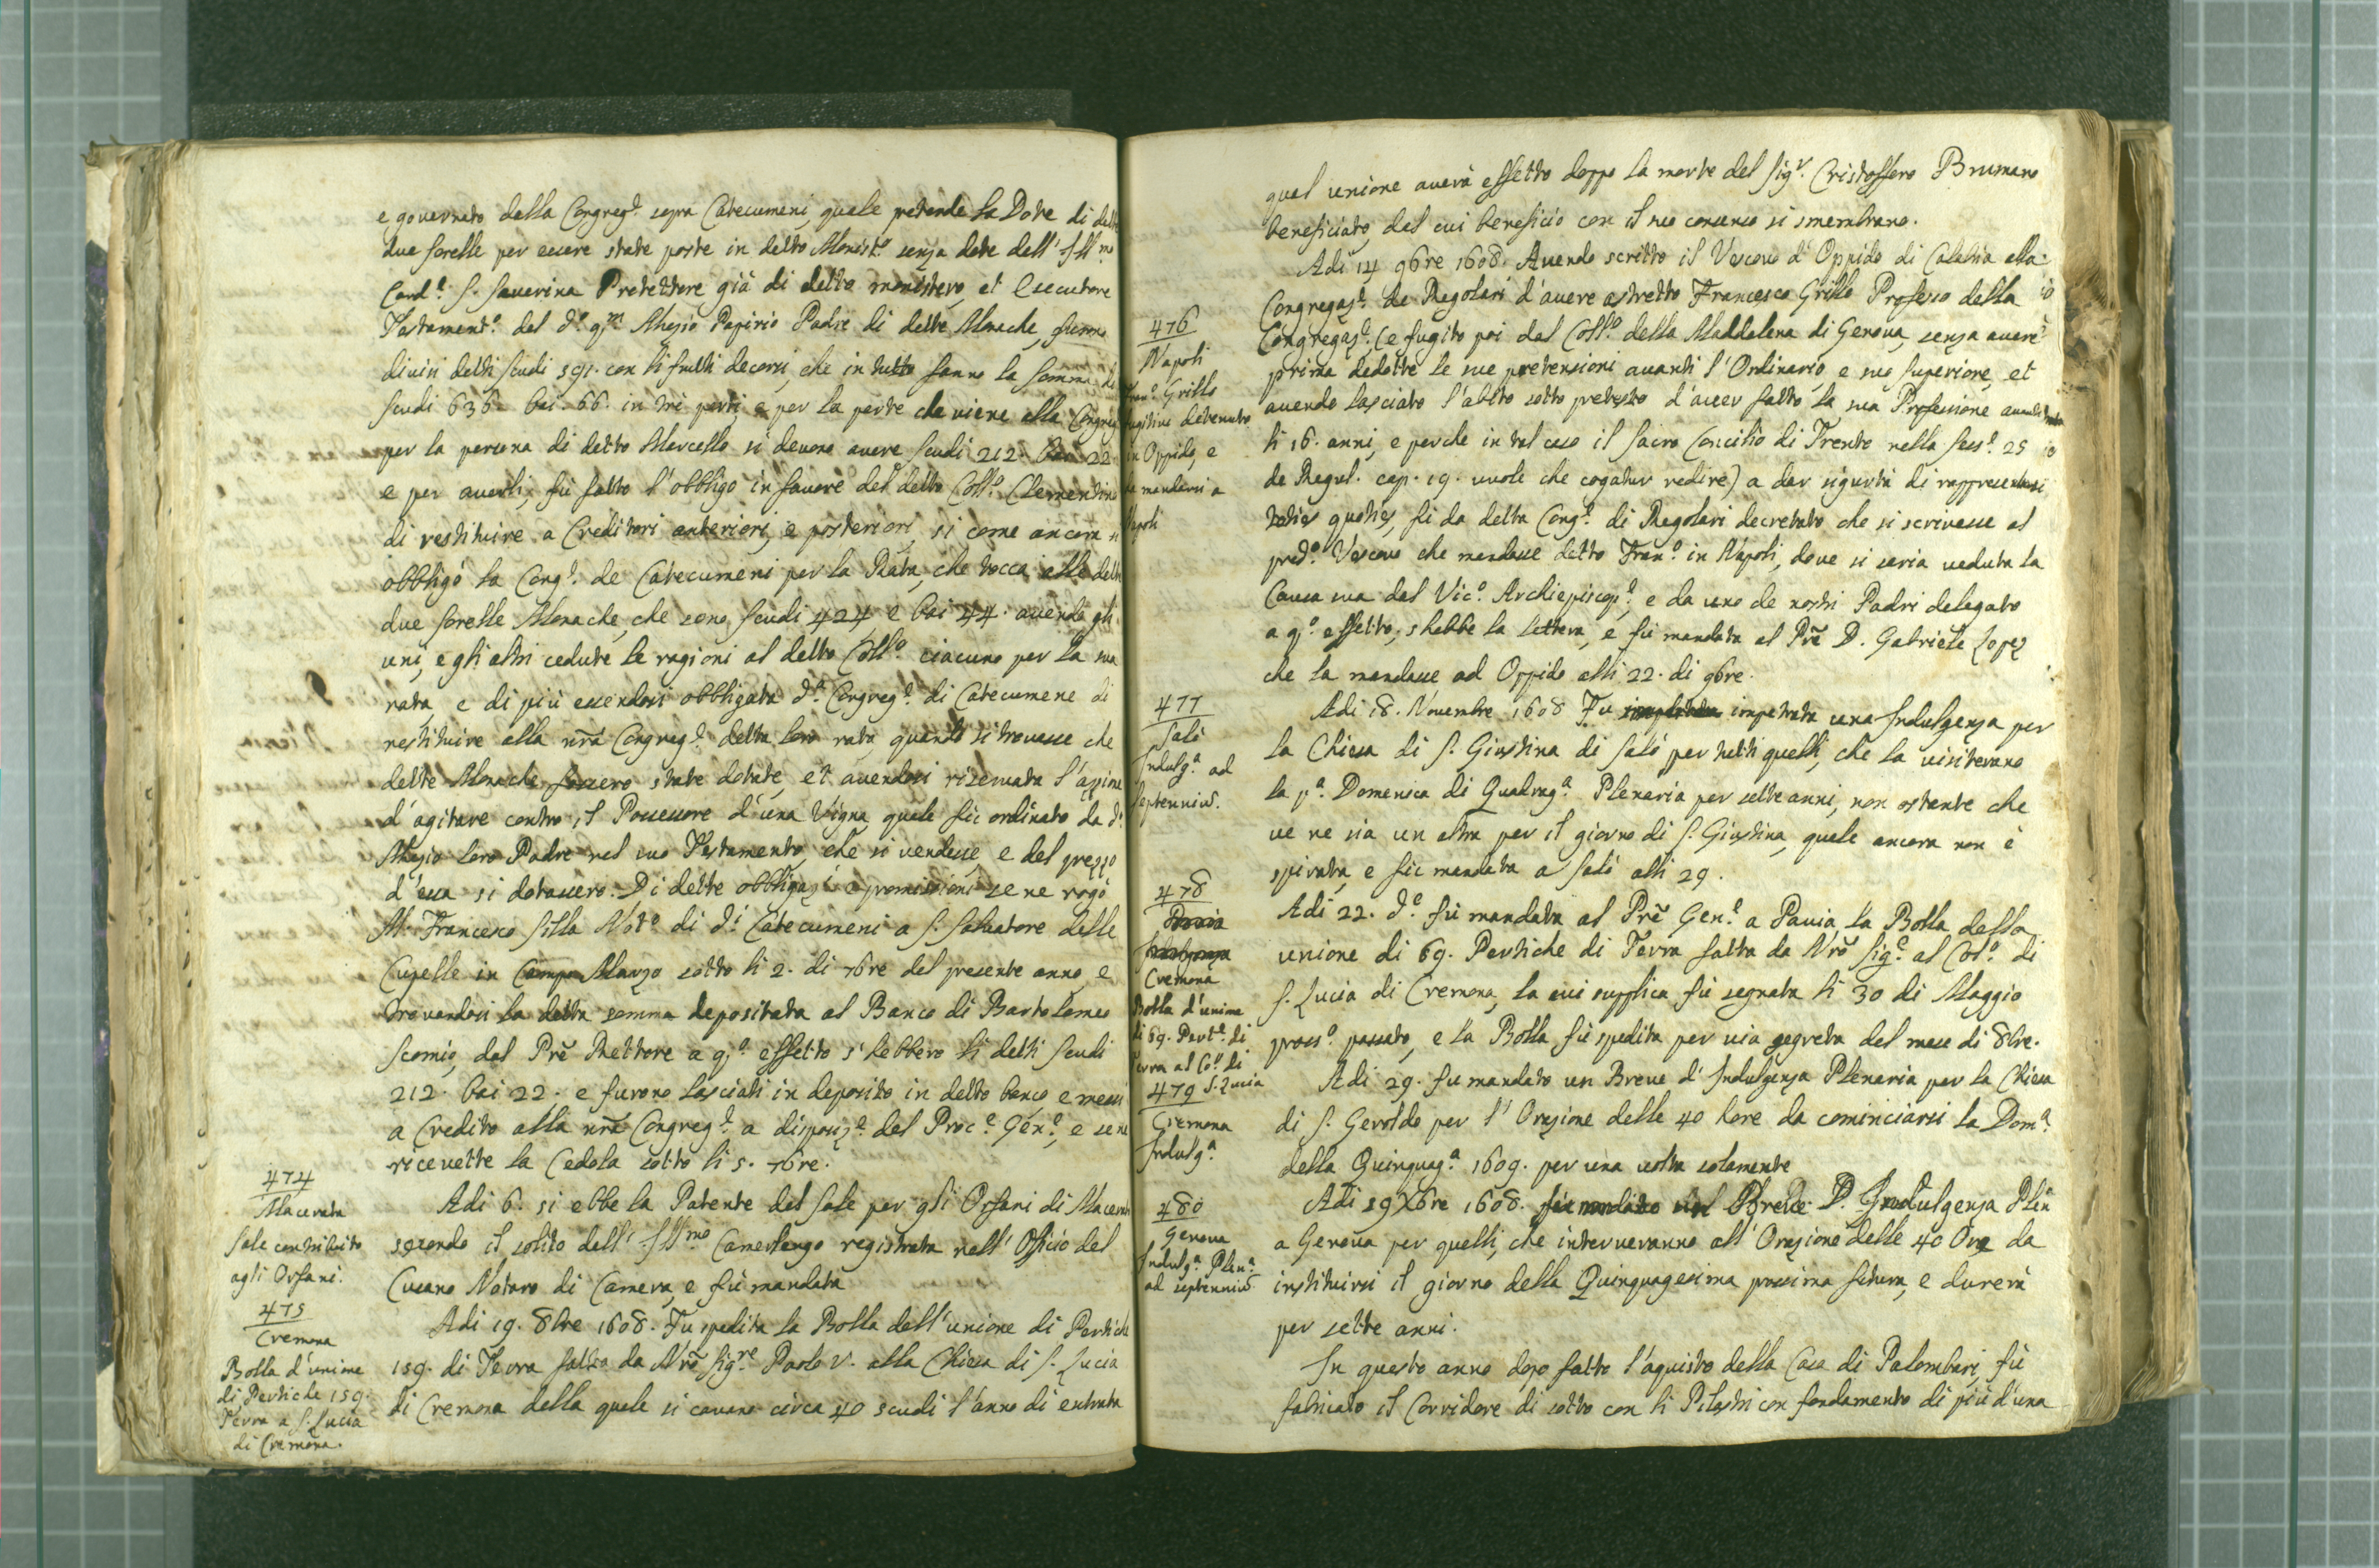 e governato della Congreg.e sopra Catecumeni, quale pretende la Dote di dette
due sorelle per essere state poste in detto Monist.o senza dote dell' Ill.mo
Card.e S. Severina Protettore già di detto monistero, et Esecutore
Testament.o del d.o q.m Alezio Papirio Padre di dette Monache, furono
divisi detti scudi 591. con li frutti decorsi, che in tutto fanno la somma di
scudi 636. bai. 66. in trè parti, e per la parte che viene alla Congreg
per la persona di detto Marcello si devono avere scudi 212. bai 22
e per averli, fù fatto l'obbligo in favore del detto Coll.o Clementino
di restituire a Creditori anteriori, e posteriori, si come ancora si
obbligò la Cong.e de Catecumeni per la Rata, che tocca alle dette
due sorelle Monache, che sono scudi 424 e bai 44. avendo gli
uni, e gli altri cedute le ragioni al detto Coll.o ciacuno per la sua
rata, e di più essendosi obbligata d.a Congreg.e di Catecumene di
restituire alla nr̃a Congreg.e detta loro rata quando si trovasse che
dette Monache fossero state dotate, et avendosi riservata l'azione
d'agitare contro il Possessore d'una Vigna quale fù ordinato da d.o
Alezio loro Padre nel suo Testamento, che si vendesse, e del prezzo
d'essa si dotassero. Di dette obbligaz.i e promissioni se ne rogò
M. Francesco Silla Not.o di d.i Catecumeni a S. Salvatore delle
Cupelle in Campo Marzo sotto li 2. di 7bre del presente anno, e
trovandosi la detta somma depositata al Banco di Bartolomeo
Scomio, dal Prẽ Rettore a q.o effetto s'hebbero li detti scudi
212. bai 22. e furono lasciati in deposito in detto banco, e messi
a Credito alla nr̃a Congreg.e a disposiz.e del Proc.e Gen.e, e se ne
ricevette la Cedola sotto li 5. 7bre.
474
Macerata
Sale contribuito
agli Orfani.
Adi 6. si ebbe la Patente del sale per gli Orfani di Macerata
secondo il solito dell' Ill.mo Camerlengo registrata nell' Officio del
Cusano Notaro di Camera, e fù mandata
475
Cremona
Bolla d'unione
di Pertiche 159.
Terra a S. Lucia
di Cremona.
Adi 19. 8bre 1608. Fu spedita la Bolla dell'unione di Pertiche
159. di Terra fatta da Nrõ Sig.re Paolo V. alla Chiesa di S. Lucia
di Cremona della quale si cavano circa 40 scudi l'anno di entrata
qual unione averà effetto doppo la morte del Sig.r Cristoffero Brumano
beneficiato, dal cui beneficio con il suo consenso si smembrano.
476
Napoli
Fran.o Grillo
fugitivo detenuto
in Oppido, e
da mandarsi a
Napoli
Adi 14 9bre 1608. Avendo scritto il Vescovo d'Oppido di Calabria alla
Congregaz.e de Regolari d'avere astretto Francesco Grillo Professo della
Congregaz.e (e fugito poi dal Coll.o della Maddalena di Genova, senza avere
prima dedotte le sue pretensioni avanti l'Ordinario, e suo Superiore, et
avendo lasciato l'abito sotto pretesto d'aver fatto la sua Professione avanti
li 16. anni, e perche in tal caso il Sacro Concilio di Trento nella Sess.e 25
de Regul. cap. 19. vuole che cogatur redire) a dar sigurtà di rappresentarsi
toties quoties, fù da detta Cong.e di Regolari decretato che si scrivesse al
pred.o Vescovo che mandasse detto Fran.o in Napoli, dove si seria veduta la
Causa sua dal Vic.o Archiepiscop.e, e da uno de nostri Padri delegato
a q.o effetto, s'hebbe la lettera, e fù mandata al Prẽ D. Gabriele Lopez
che la mandasse ad Oppido alli 22. di 9bre.
477
Salò
Indulg.a ad
septenniũ.
Adi 18. Novembre 1608 Fu impetrata una Indulgenza per
la Chiesa di S. Giustina di Salò per tutti quelli, che la visiterano
la p.a Domenica di Quadrag.a Plenaria per sette anni, non ostante che
ve ne sia un altra per il giorno di S. Giustina, quale ancora non è
spirata, e fù mandata a Salò alli 29.
478
Pavia
Indulgenza
Cremona
Bolla d'unione
di 69. Pert.e di
terra al Co.o di
S. Lucia
Adi 22. d.o fù mandata al Prẽ Gen.e a Pavia la Bolla della
unione di 69. Pertiche di Terra fatta da Nrõ Sig.e al Col.o di
S. Lucia di Cremona, la cui supplica fù segnata li 30 di Maggio
pross.o passato, e la Bolla fù spedita per via segreta del mese di 8bre.
479
Cremona
Indulg.a
Adi 29. fu mandato un Breve d'Indulgenza Plenaria per la Chiesa
di S. Geroldo per l'Orazione delle 40 hore da cominciarsi la Dom.a
della Quinquag.a 1609. per una volta solamente
480
Genova
Indulg.a Plen.a
ad septenniũ
Adi 29 Xbre 1608. fù mandato un Breve D. Indulgenza Plen
a Genova per quelli, che interveranno all'Orazione delle 40 Ore da
instituirsi il giorno della Quinquagesima prossima futura, e durerà
per sette anni.
In questo anno dopo fatto l'aquisto della Casa di Palombari, fù
fabricato il Corridore di sotto con li Pilastri con fondamento di più d'una